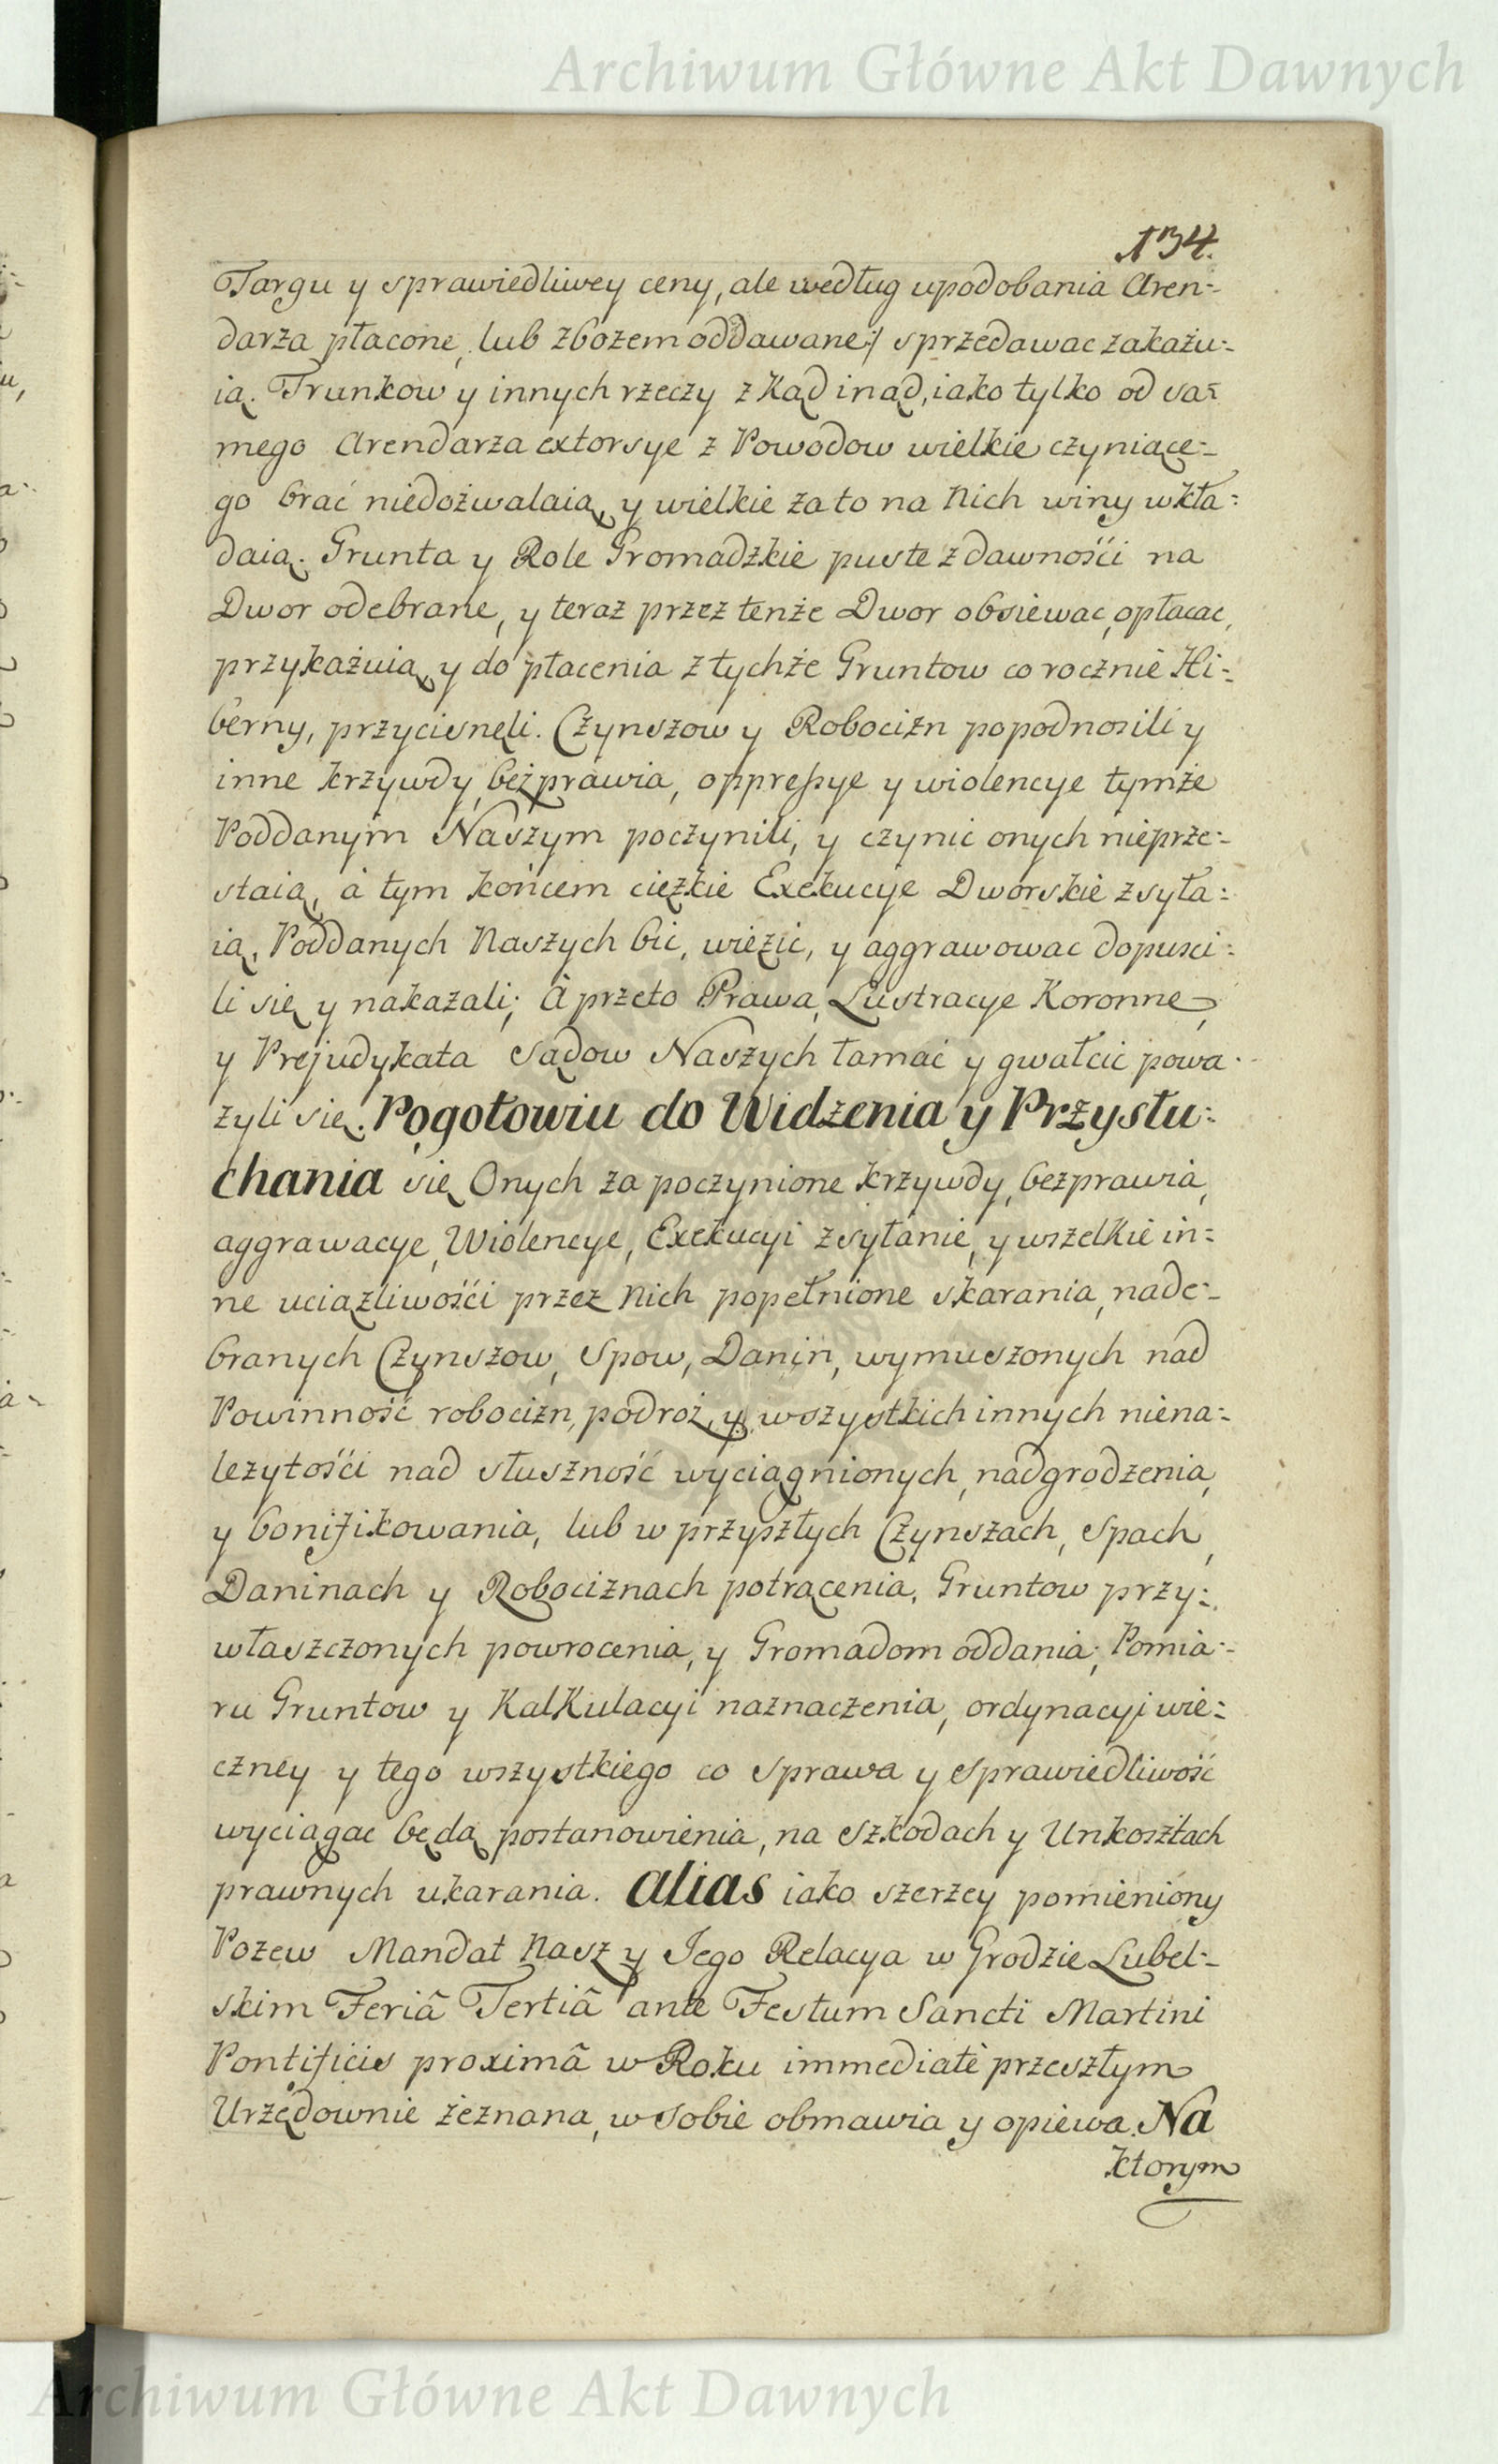 Archiwum Główne Akt Dawnych
134.
Targu y sprawiedliwey ceny, ale według upodobania Aren-
darza płacone, lub zbożem oddawane:/ sprzedawac zakazu-
ią. Trunkow y innych rzeczy z kąd inąd, iako tylko od sa-
mego Arendarza extorsye z Powodow wielkie czyniące-
go brać niedozwalaią, y wielkie za to na Nich winy wkła-
daią. Grunta y Role Gromadzkie puste z dawności na
Dwor odebrane, y teraz przez tenże Dwor obsiewac, opłacac,
przykazuią, y do płacenia z tychże Gruntow co rocznie Hi-
berny, przycisneli. Czynszow y Robocizn popodnosili y
inne krzywdy, bezprawia, oppressye y wiolencye tymże
Poddanym Naszym poczynili, y czynic onych nieprze-
staią, á tym końcem cięzkie Exekucye Dworskie zsyła-
ią, Poddanych Naszych bic, więzic, y aggrawowac dopusci-
li się y nakazali; A przeto Prawa, Lustracye Koronne,
y Prejudykata Sądow Naszych łamać y gwałcic powa-
zyli się. Pogotowiu do Widzenia y Przysłu-
chania się Onych za poczynione krzywdy, bezprawia,
aggrawacye, Wiolencye, Exekucyi zsyłanie, y wszelkie in-
ne uciązliwości przez Nich popełnione skarania, nade-
branych Czynszow, Spow, Danin, wymuszonych nad
Powinność robocizn, podroż, y wszystkich innych niena-
lezytości nad słuszność wyciągnionych, nadgrodzenia,
y bonifikowania, lub w przyszłych Czynszach, Spach,
Daninach y Robociznach potrącenia, Gruntow przy-
właszczonych powrocenia, y Gromadom oddania; Pomia-
ru Gruntow y Kalkulacyi naznaczenia, ordynacyi wie-
czney y tego wszystkiego co Sprawa y Sprawiedliwość
wyciągac będą postanowienia, na Szkodach y Unkosztach
prawnych ukarania. Alias iako szerzey pomieniony
Pozew Mandat Nasz y Jego Relacya w Grodzie Lubel-
skim Feriâ Tertiâ ante Festum Sancti Martini
Pontificis proximâ w Roku immediatè przeszłym
Urzędownie zeznana, w Sobie obmawia y opiewa. Na
ktorym
Archiwum Główne Akt Dawnych